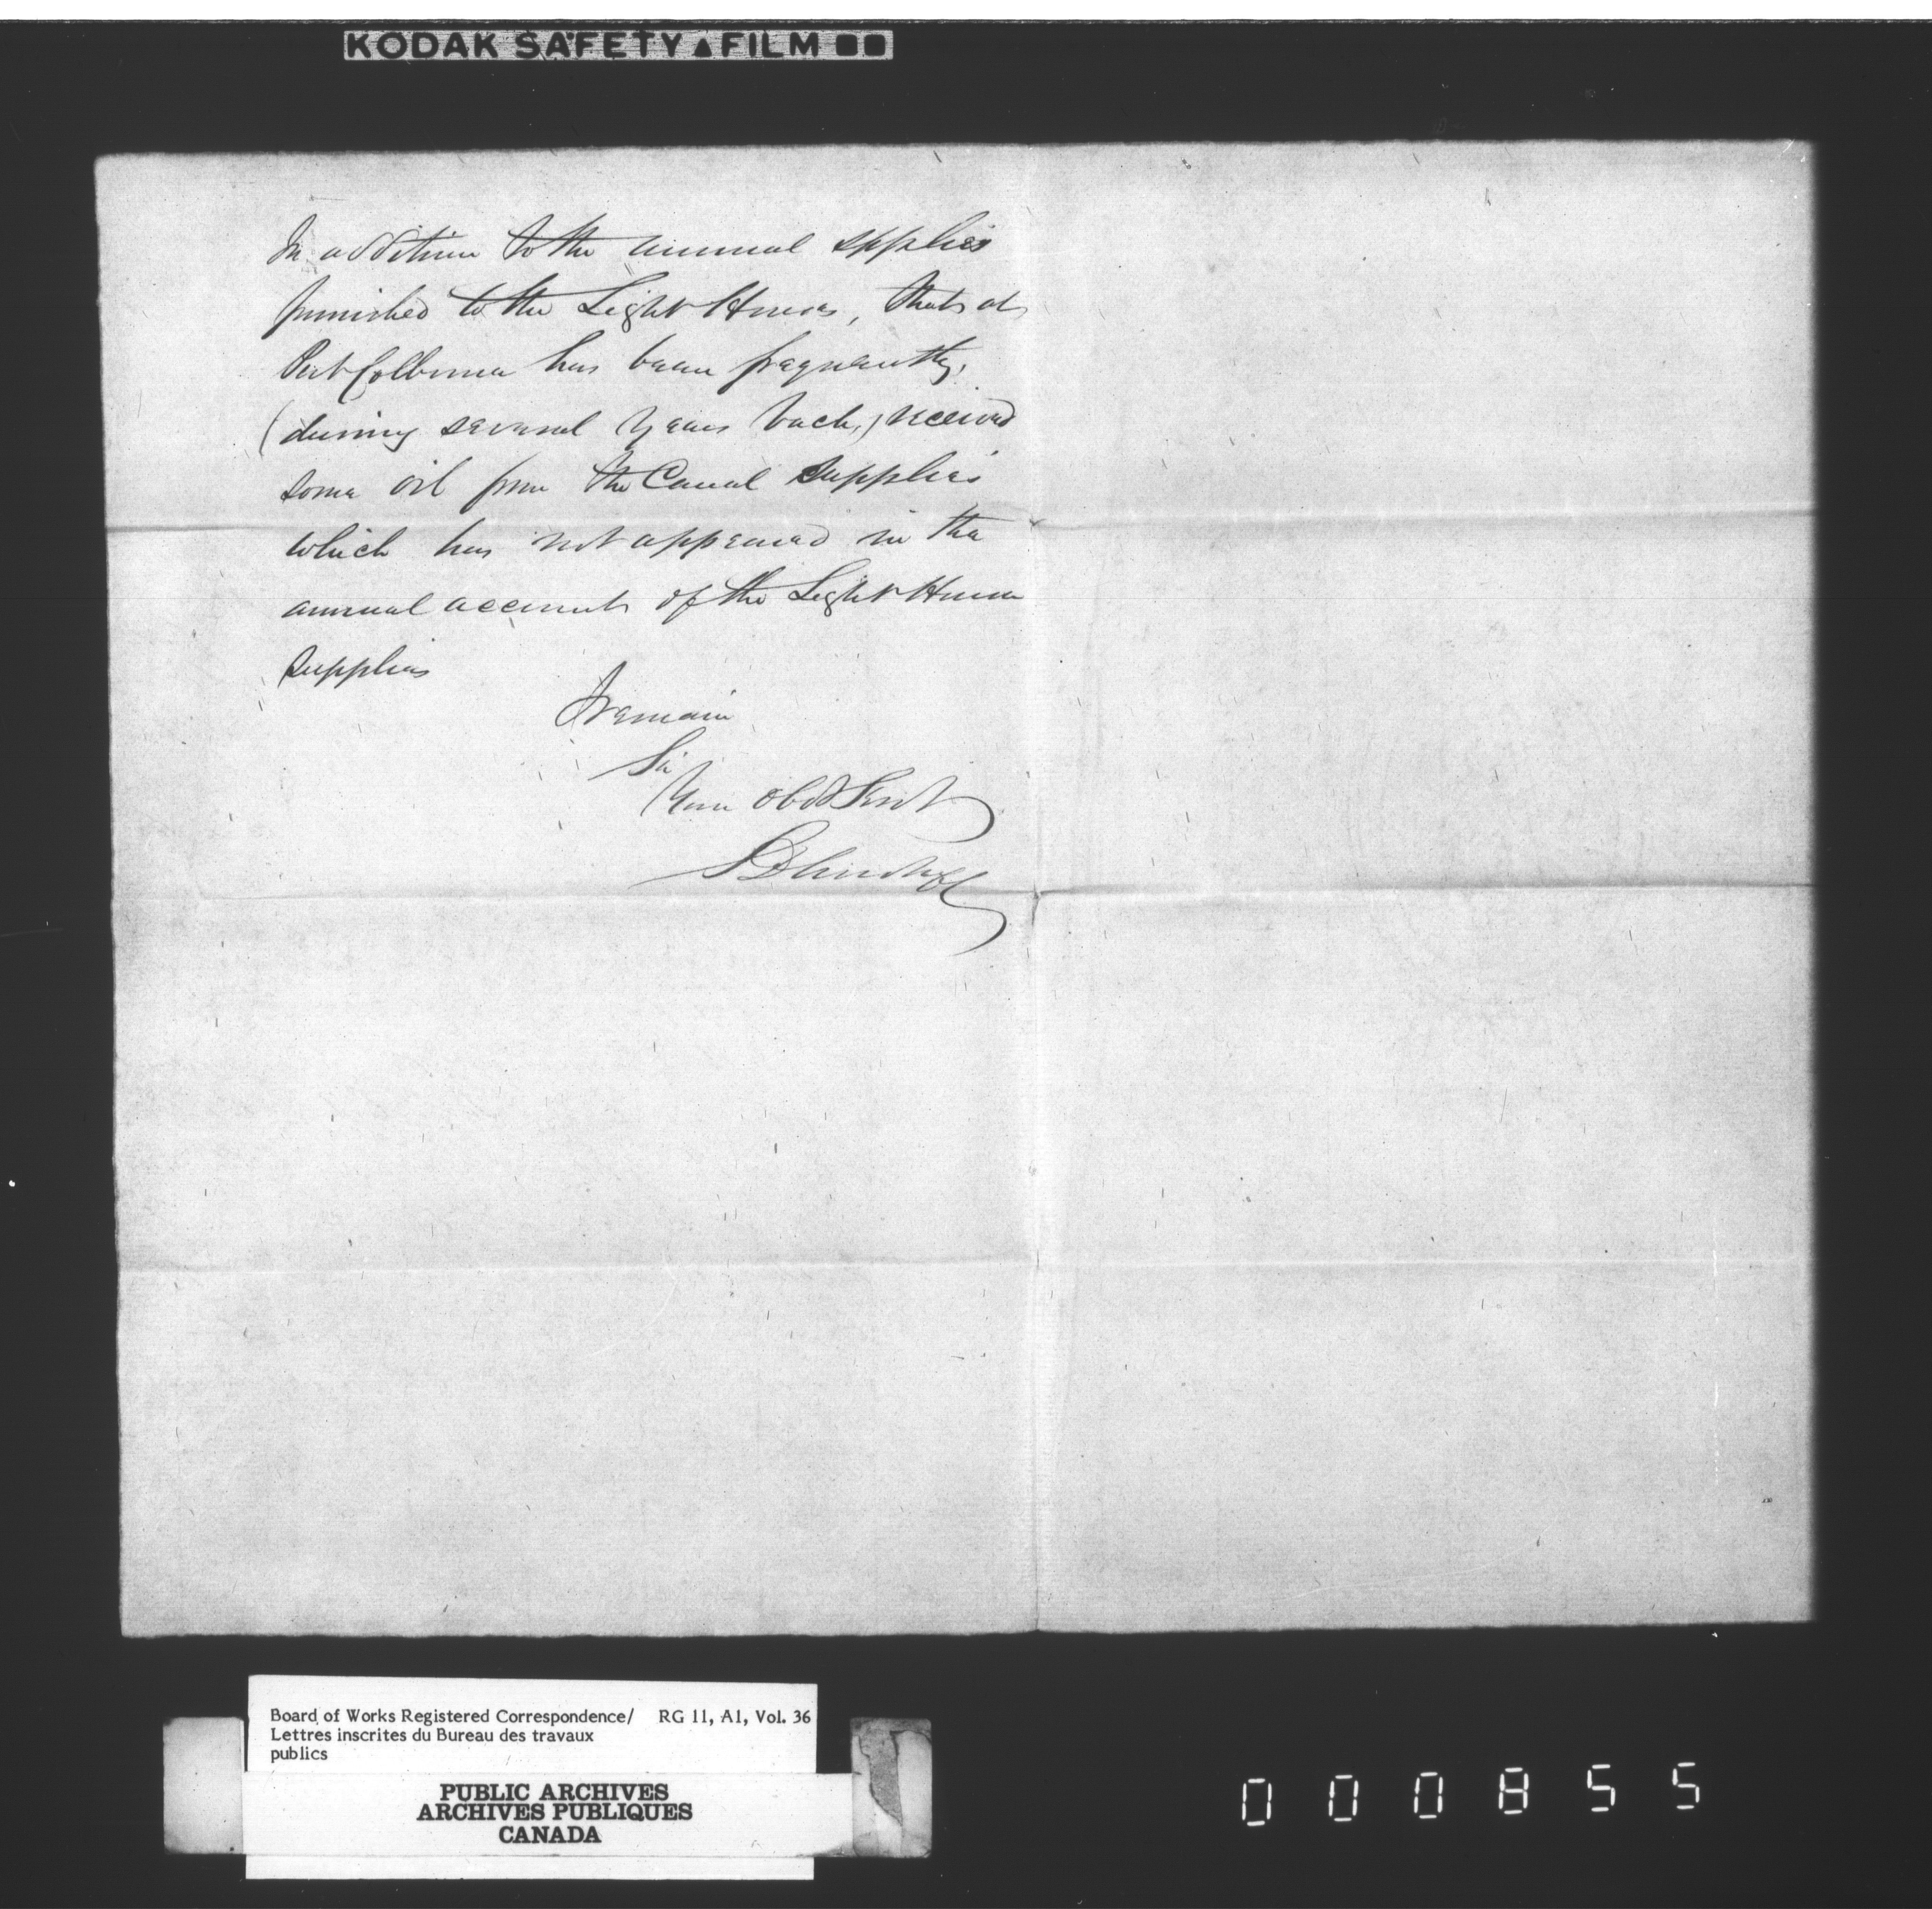 KODAK SAFETY FILM
In addition to the annual spplies
furnished to the Light Houses, that at
Port Colborne has been frequently,
(during several years back,) received
some oil from the Canal supplies
which has not appeared in the
annual accounts of the Light House
supplies
I remain
Sir
Your Obdt Servt
Board of Works Registered Correspondence/ RG 11, A1, Vol. 36
Lettres inscrites du Bureau des travaux
publics
PUBLIC ARCHIVES
ARCHIVES PUBLIQUES
CANADA
000855